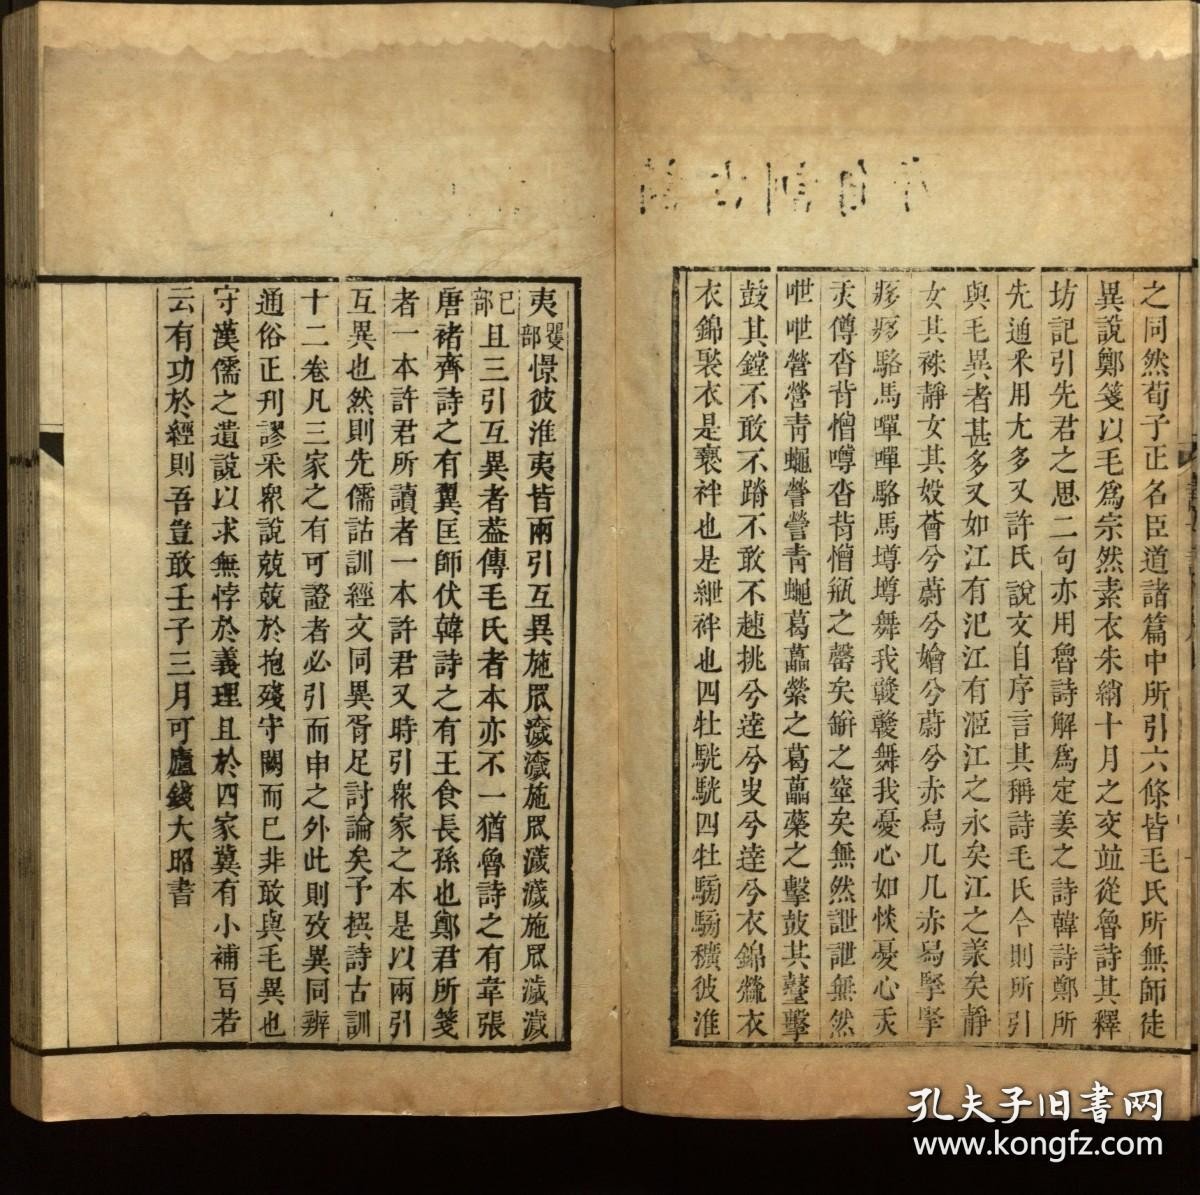 之同然荀子正名臣道諸篇中所引六條皆毛氏所無師徒
異說鄭箋以毛爲宗然素衣朱綃十月之交竝從魯詩其釋
坊記引先君之思二句亦用魯詩解爲定姜之詩韓詩鄭所
先通釆用尢多又許氏說文自序言其稱詩毛氏今則所引
與毛異者甚多又如江有汜江有洍江之永矣江之羕矣靜
女其袾靜女其㛐薈兮蔚兮嬒兮蔚兮赤舄几几赤舄掔掔
痑痑駱馬嘽嘽駱馬壿壿舞我竷竷舞我憂心如惔憂心𤆍
𤆍傅沓背憎噂沓背憎瓶之罄矣缾之窒矣無然詍詍無然
呭呭營營青蠅謍謍青蠅葛藟縈之葛藟藥之擊鼓其鼞擊
鼓其鏜不敢不蹐不敢不趚挑兮達兮𠬢兮達兮衣錦䌹衣
衣錦褧衣是褻袢也是紲袢也四牡駫駫四牡騯騯穬彼淮
夷瞿部憬彼淮夷皆兩引互異施罛濊濊施罛濊濊施罛濊濊
已部且三引互異者葢傳毛氏者本亦不一猶魯詩之有韋張
唐褚齊詩之有翼匡師伏韓詩之有王食長孫也鄭君所箋
者一本許君所讀者一本許君又時引衆家之本是以兩引
互異也然則先儒詁訓經文同異胥足討論矣予撰詩古訓
十二卷凡三家之有可證者必引而申之外此則攷異同辨
通俗正刋謬釆衆說兢兢於抱殘守闕而已非敢與毛異也
守漢儒之遺說以求無悖於義理且於四家冀有小補耳若
云有功於經則吾豈敢壬子三月可廬錢大昭書
孔夫子旧書网
www.kongfz.com